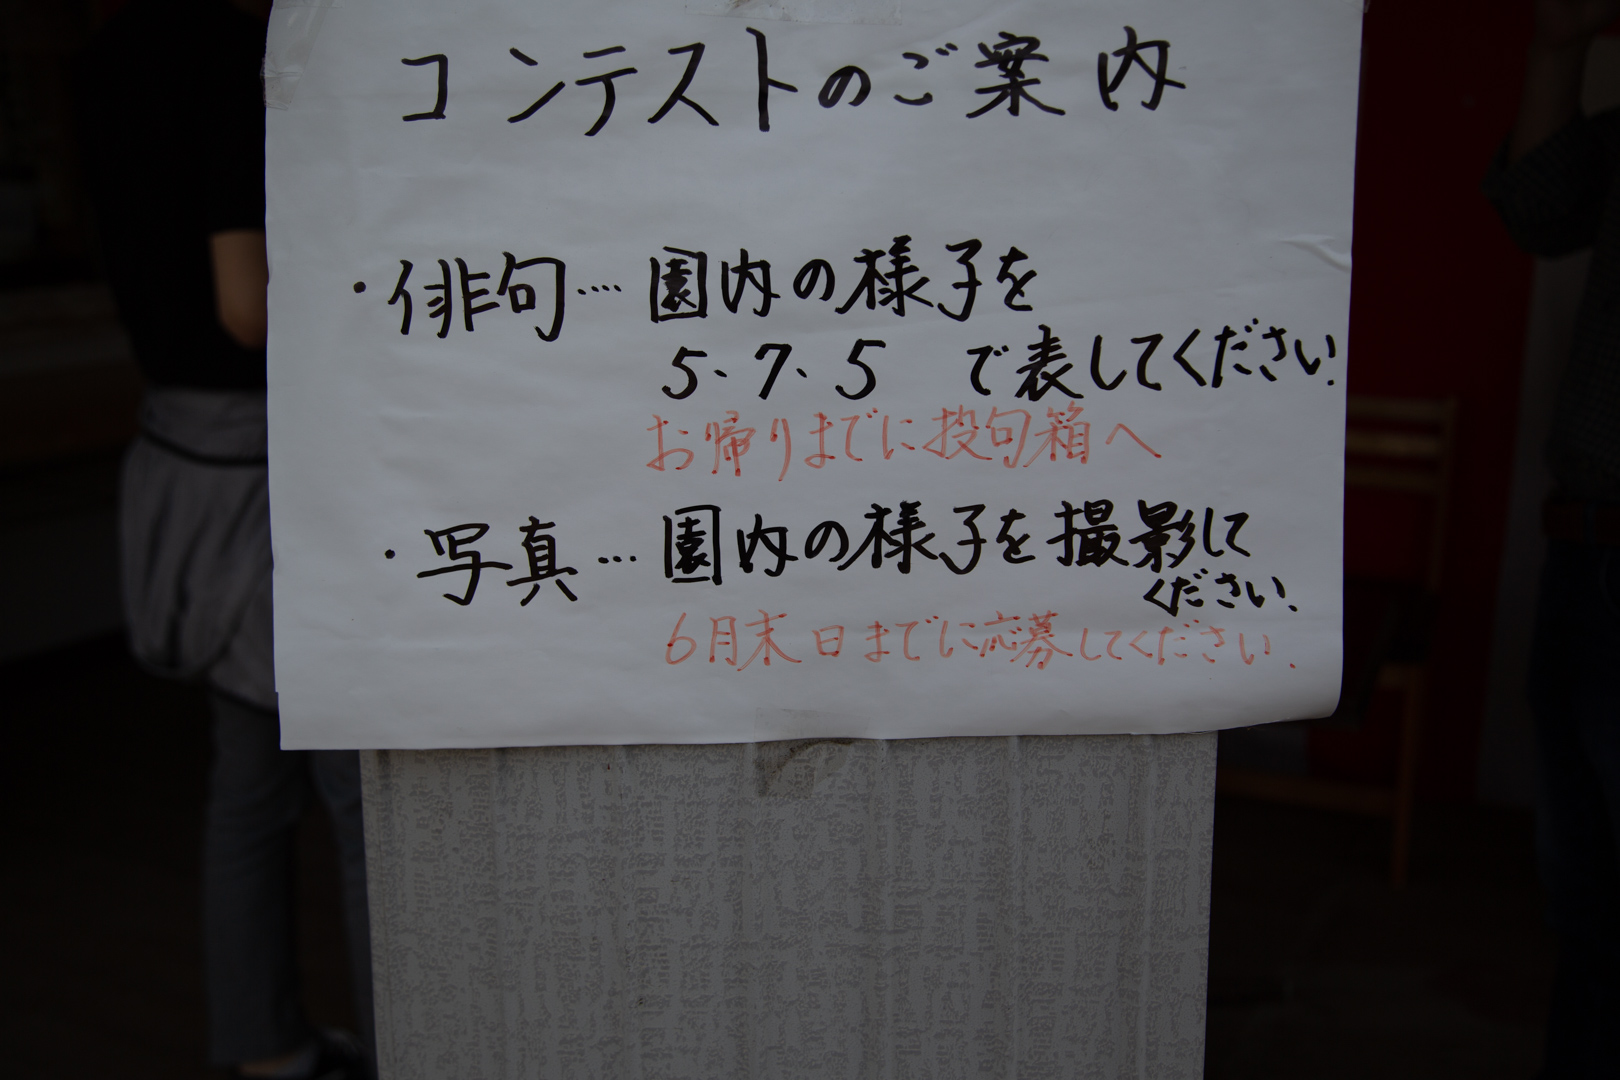 コンテストのご案内
・俳句‥‥園内の様子を
5、7、5 で表してください。
お帰りまでに投句箱へ
・写真…園内の様子を撮影して
ください。
6月末日までに応募してください。